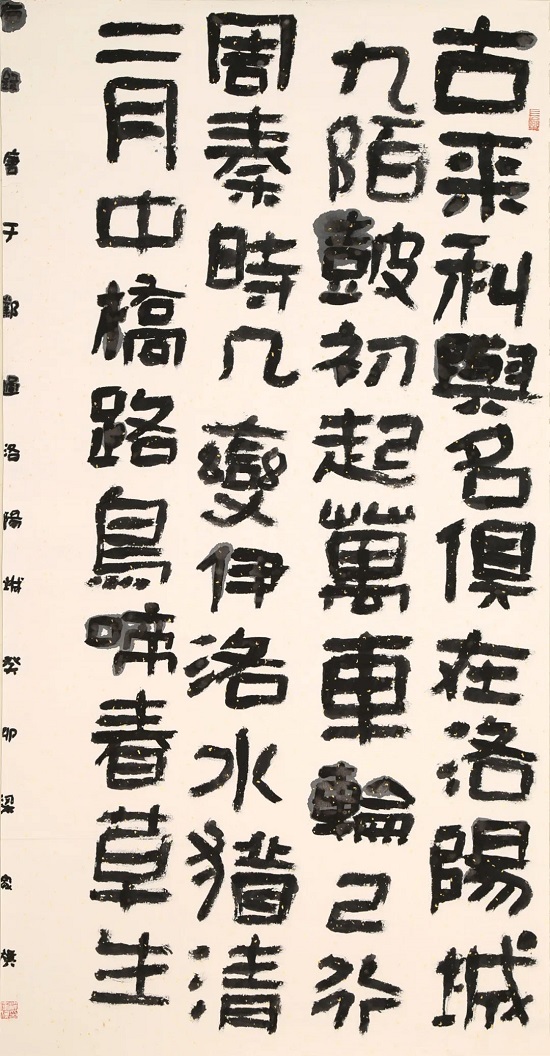 古来利與名俱在洛陽城
九陌皷初起萬車輪已行
周秦時几變伊洛水猶清
二月中橋路鳥啼春草生
錄唐于鄴過洛陽城癸卯梁家